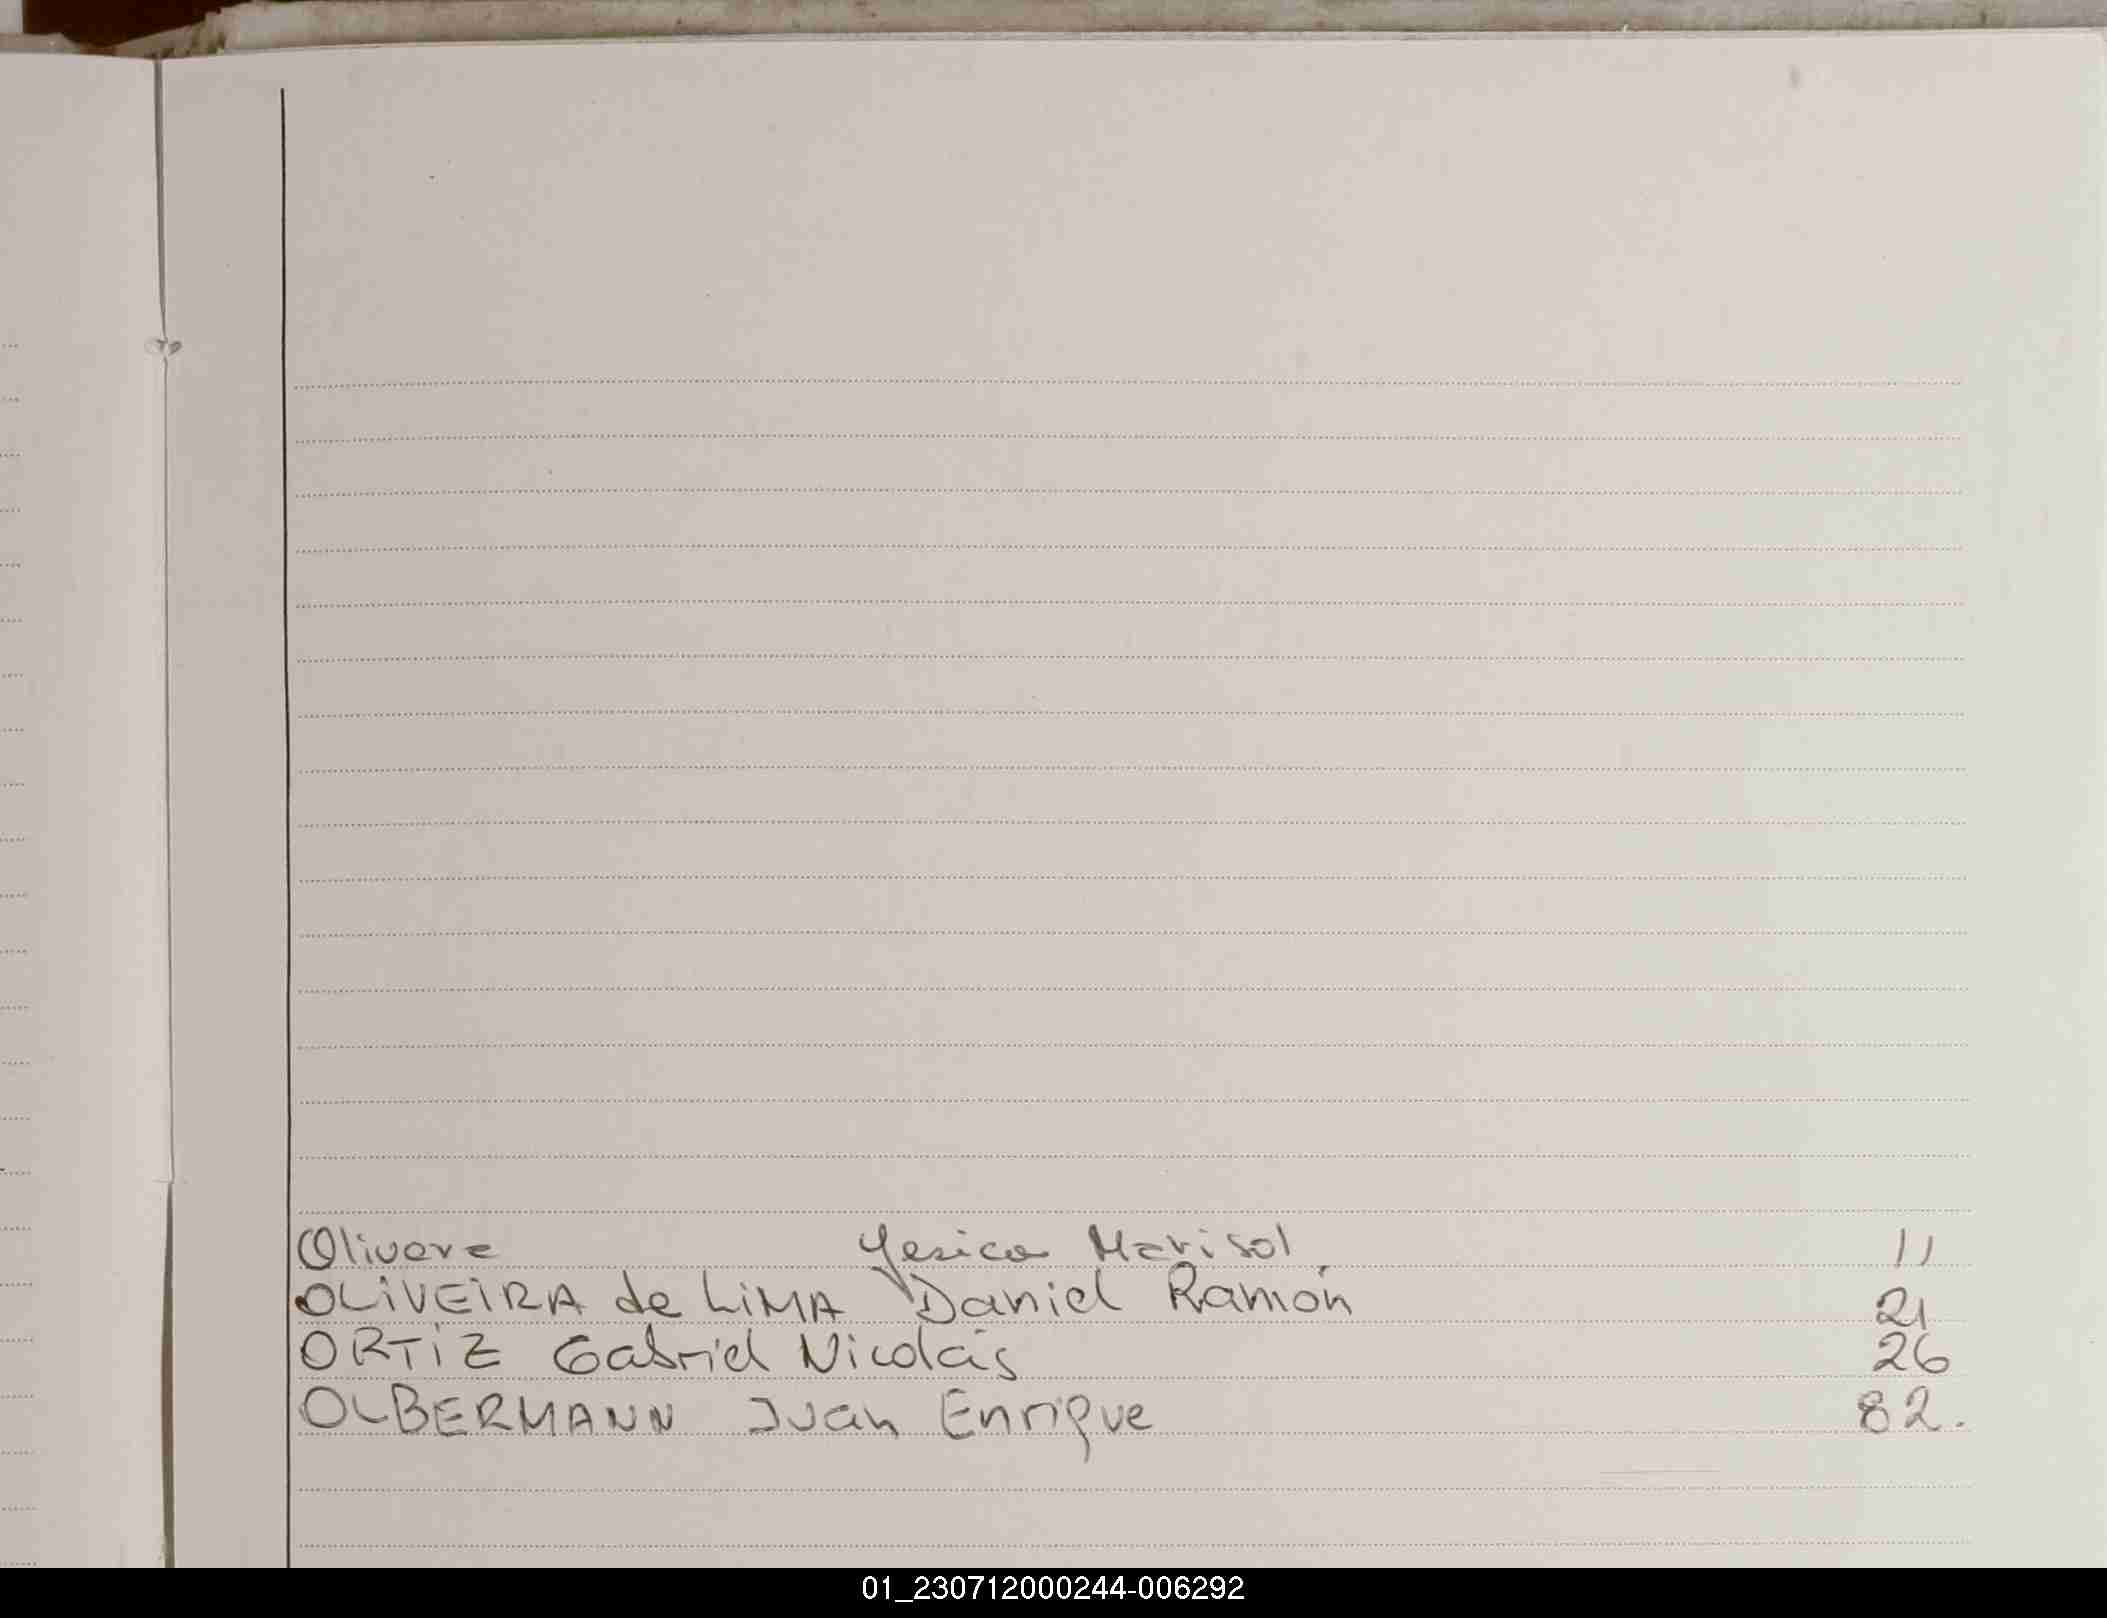 Olivera Yesica Marisol 11
OLiVEiRA de LiMA Daniel Ramón 21
ORTiZ Gabriel Nicolás 26
OLBERMANN Juan Enrique 82.
01_230712000244-006292